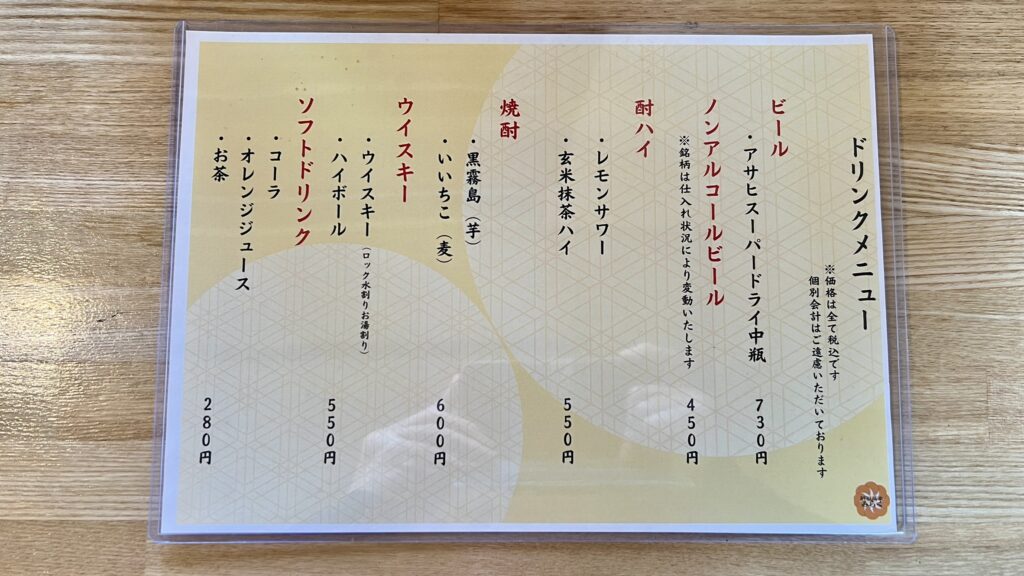 ドリンクメニュー
※価格は全て税込です
個別会計はご遠慮いただいております
ビール
・アサヒスーパードライ中瓶 730円
ノンアルコールビール
※銘柄は仕入れ状況により変動いたします 450円
酎ハイ
・レモンサワー
・玄米抹茶ハイ 550円
焼酎
・黒霧島（芋）
・いいちこ（麦） 600円
ウイスキー
・ウイスキー（ロック水割りお湯割り）
・ハイボール 550円
ソフトドリンク
・コーラ
・オレンジジュース
・お茶 280円